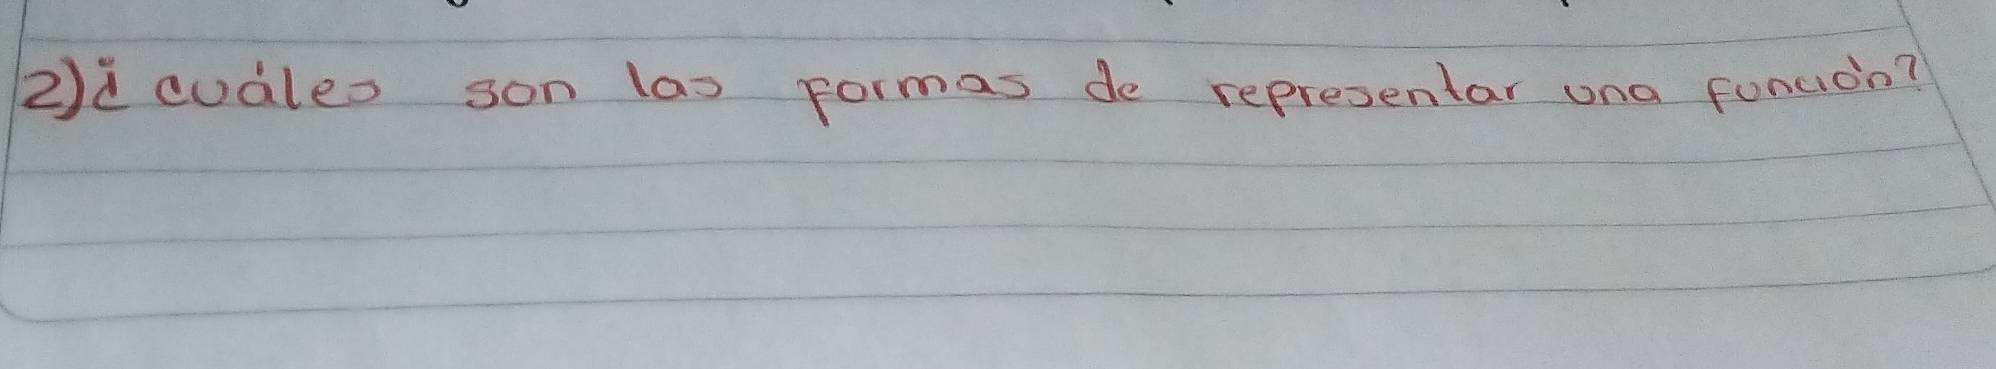 2) ¿cuáles son las formas de representar una función?